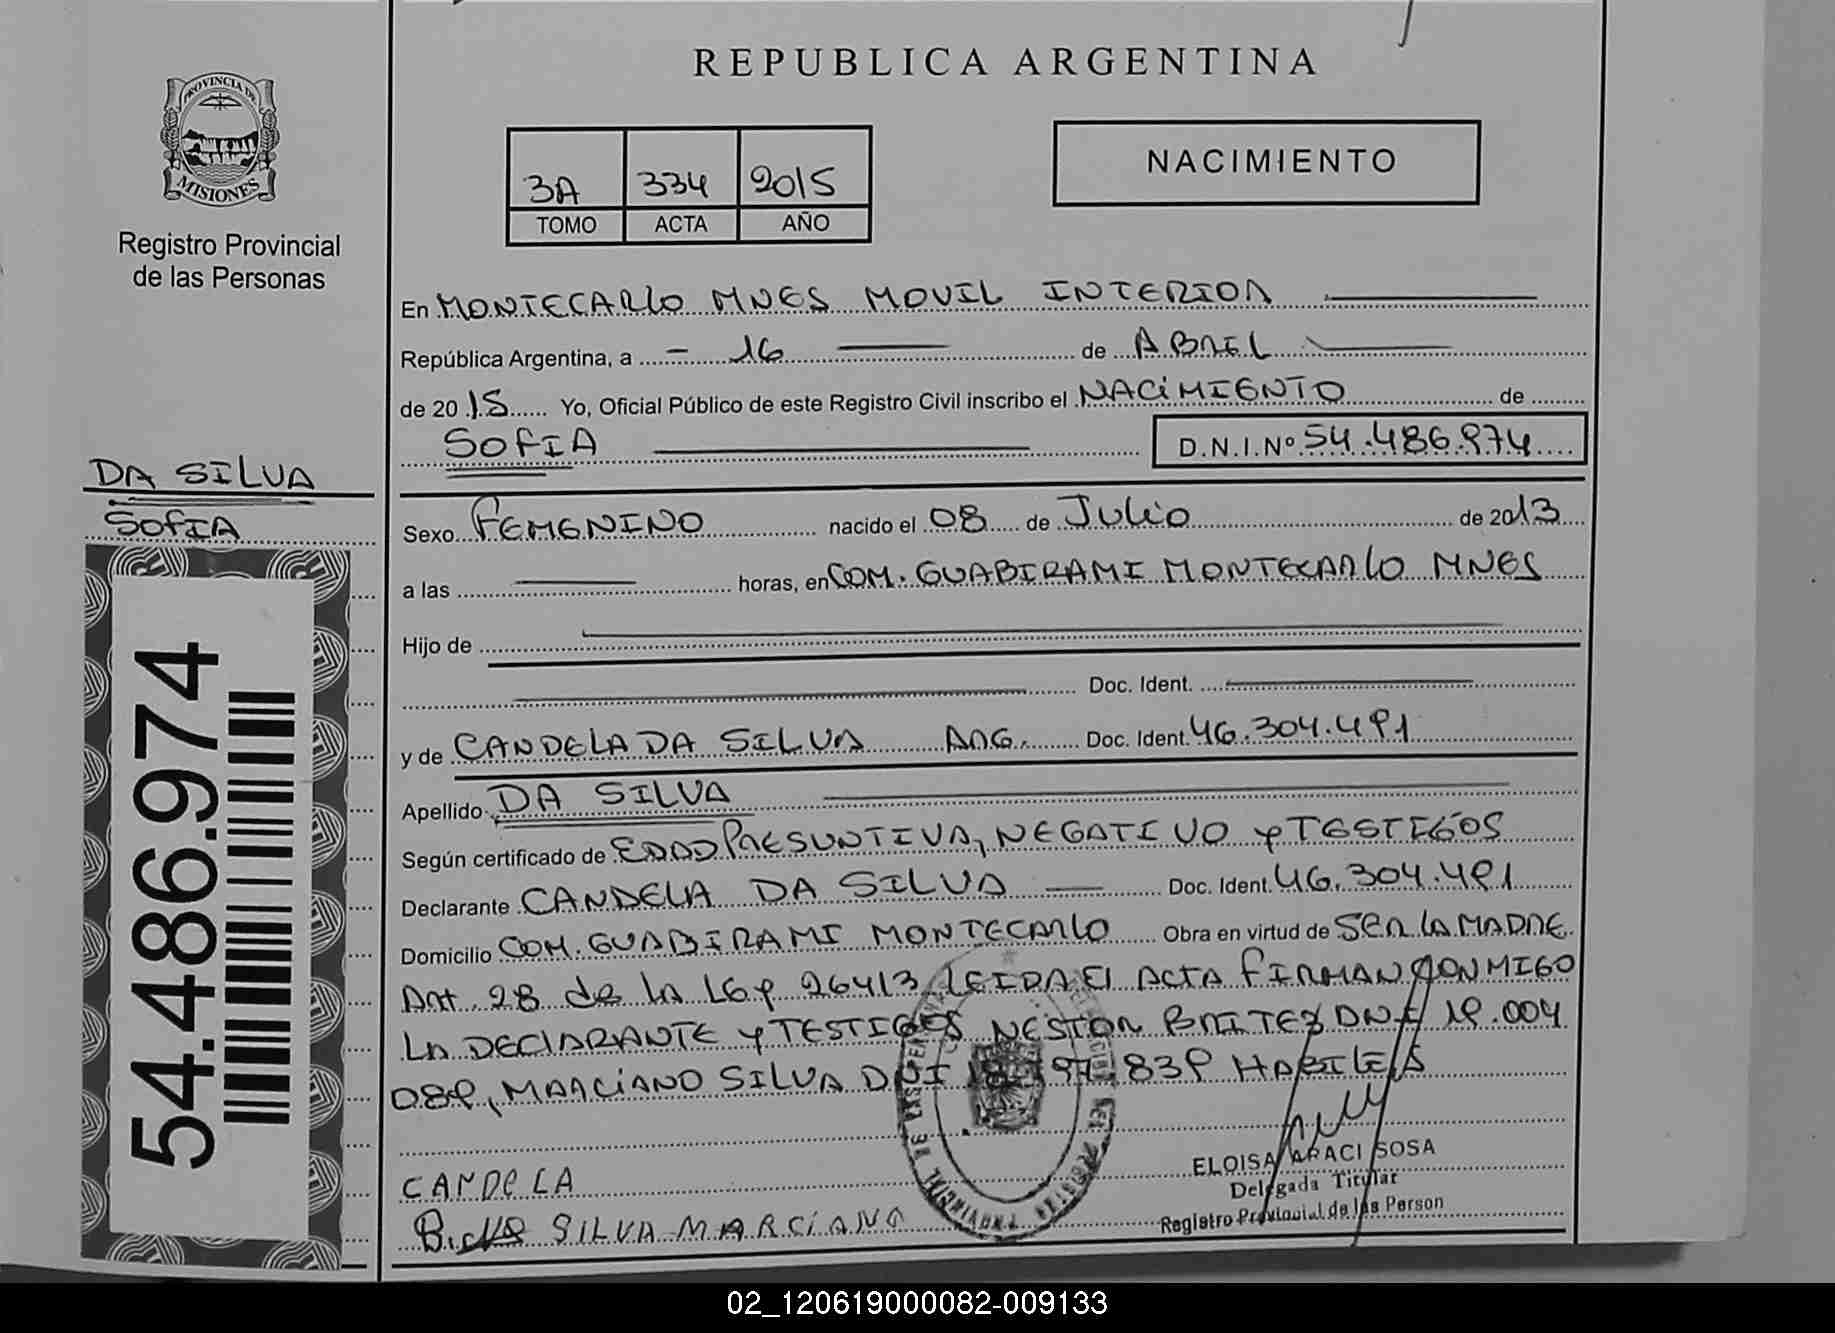 REPUBLICA ARGENTINA
PROVINCIA DE
MISIONES
Registro Provincial
de las Personas
3A 334 2015
TOMO ACTA AÑO
NACIMIENTO
En MONTECARLO MNES MOVIL INTERIOR
República Argentina, a 16 de ABRIL
de 2015 Yo, Oficial Público de este Registro Civil inscribo el NACIMIENTO de
SOFIA D.N.I.Nº 54.486.974
DA SILVA
SOFIA
54.486.974
Sexo FEMENINO nacido el 08 de JULIO de 2013
a las horas, en COM. GUABIRAMI MONTECARLO MNES
Hijo de
Doc. Ident.
y de CANDELA DA SILVA ARG. Doc. Ident. 46.304.491
Apellido DA SILVA
Según certificado de EDAD PRESUNTIVA, NEGATIVO y TESTIGOS
Declarante CANDELA DA SILVA Doc. Ident. 46.304.491
Domicilio COM. GUABIRAMI MONTECARLO Obra en virtud de SER LA MADRE
Art. 28 de la LEy 26413 LEIDA El ACTA FIRMAN CONMIGO
LA DECLARANTE y TESTIGOS NESTOR BRITEZ DNI 19.004
089, MARCIANO SILVA DNI 839 HABILES
CANDELA
SILVA MARCIANO
ELOISA ARACI SOSA
Delegada Titular
Registro Provincial de las Person
02_120619000082-009133